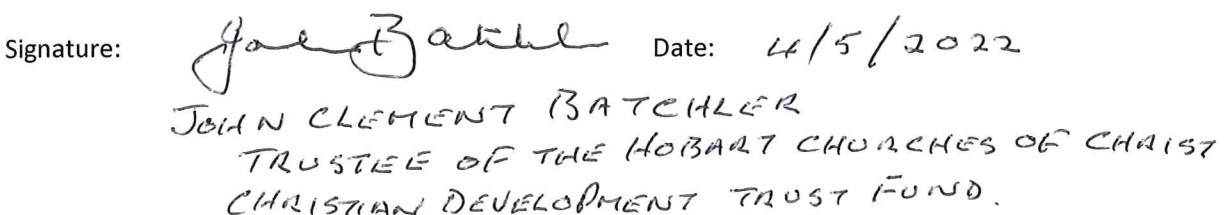 Signature: John Batchler Date: 4/5/2022
JOHN CLEMENT BATCHLER
TRUSTEE OF THE HOBART CHURCHES OF CHRIST
CHRISTIAN DEVELOPMENT TRUST FUND.